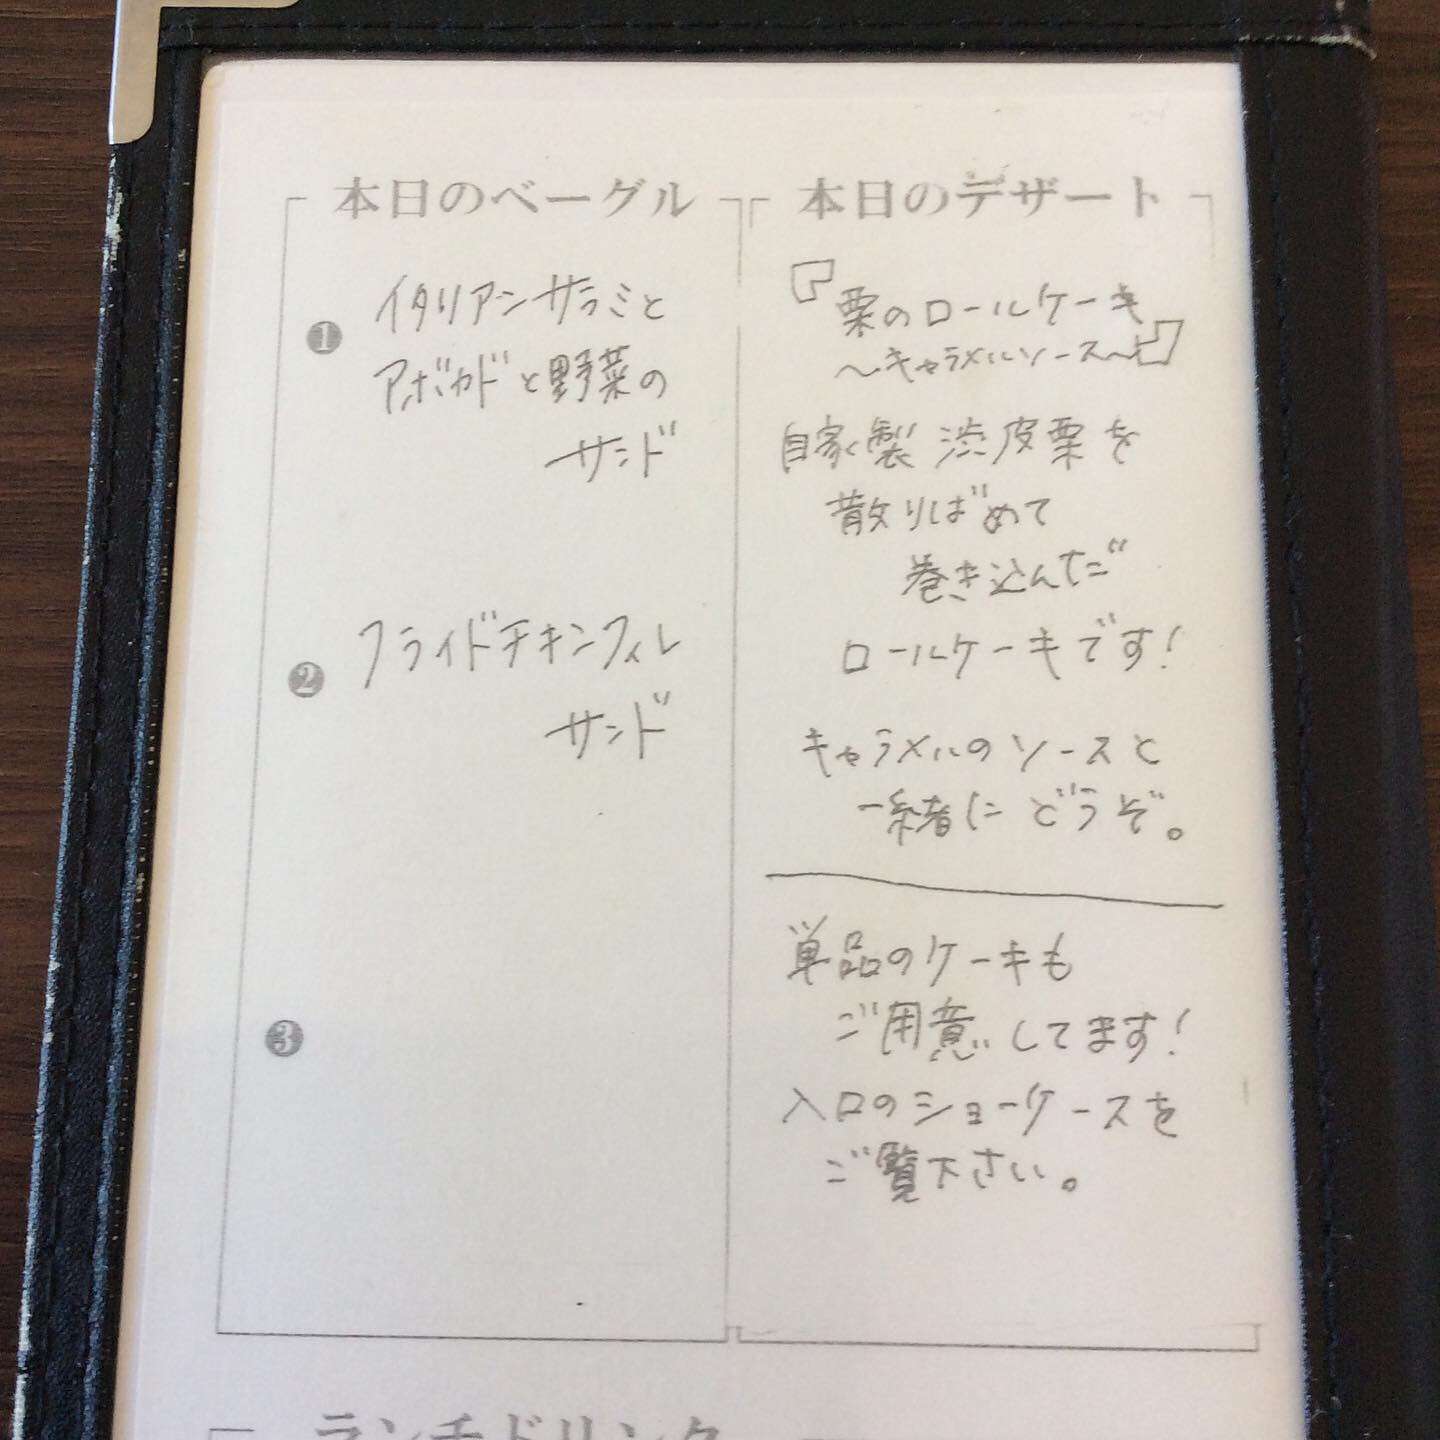 本日のベーグル
❶ イタリアンサラミと
アボカドと野菜の
サンド
❷ フライドチキンフィレ
サンド
❸
本日のデザート
『栗のロールケーキ
〜キャラメルソース〜』
自家製渋皮栗を
散りばめて
巻き込んだ
ロールケーキです!
キャラメルのソースと
一緒にどうぞ。
単品のケーキも
ご用意してます!
入口のショーケースを
ご覧下さい。
ランチドリンク